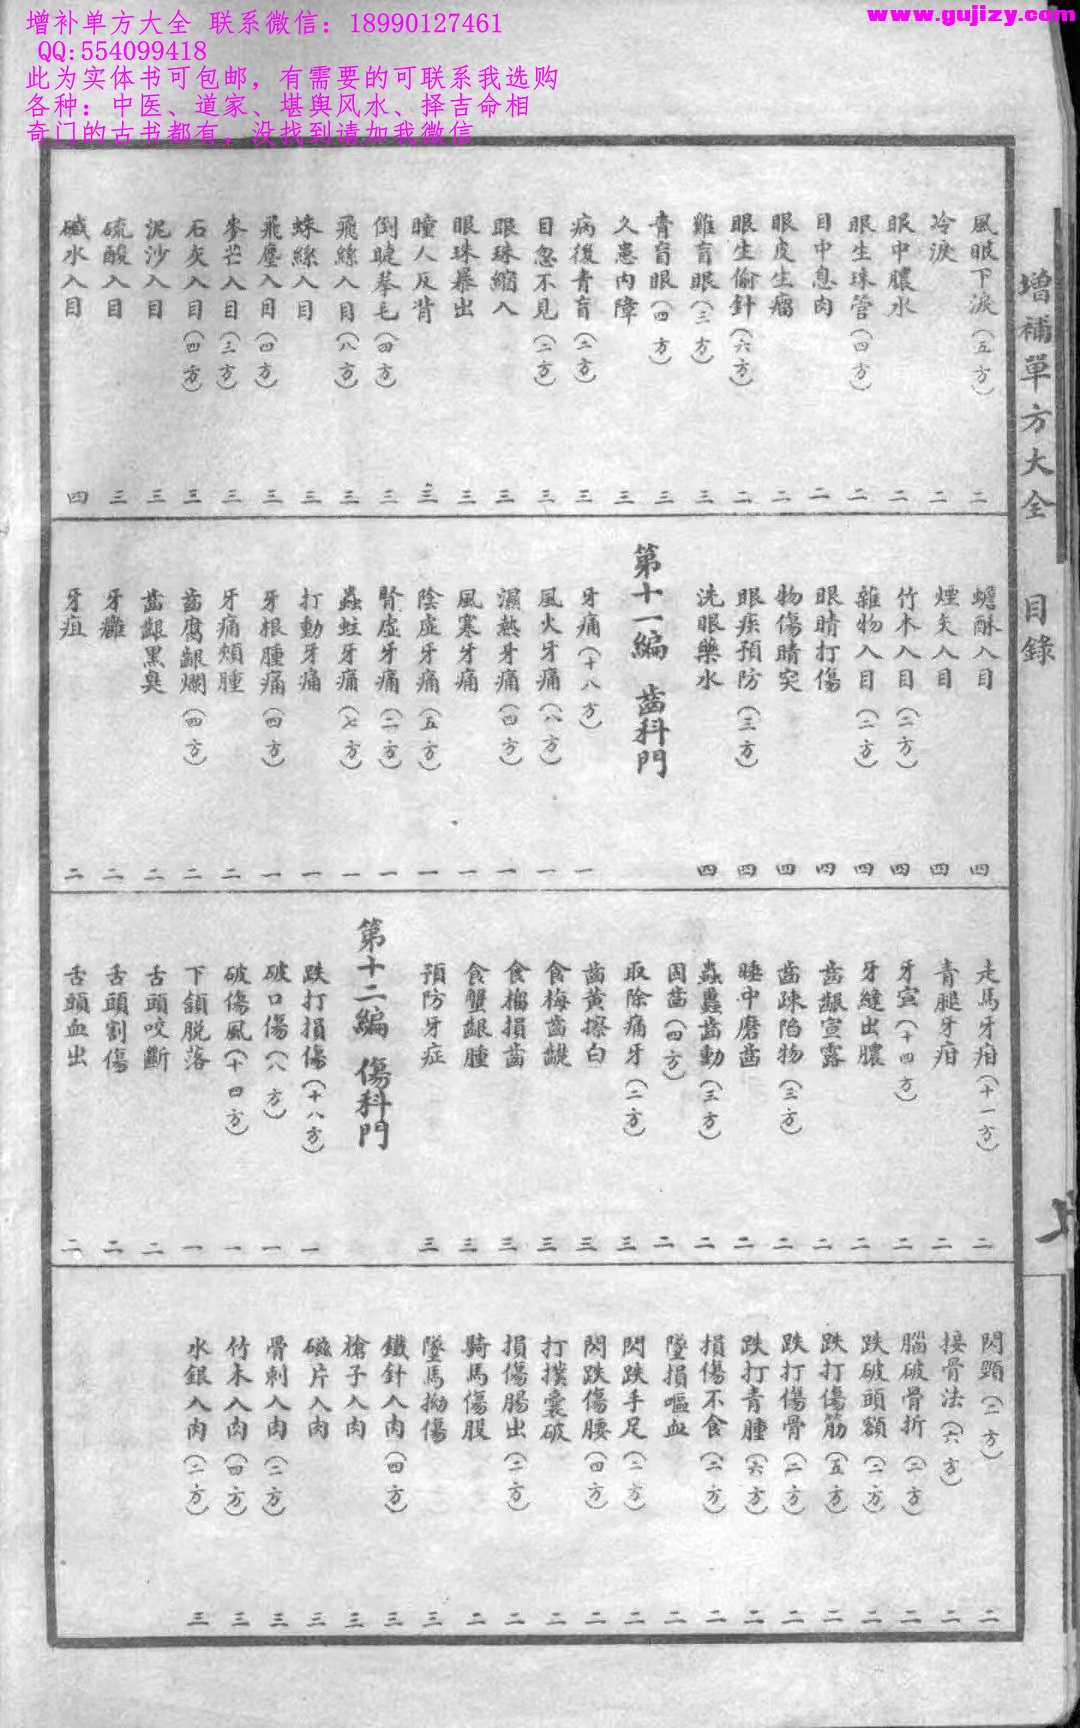 增补单方大全 联系微信：18990127461
QQ:554099418
此为实体书可包邮，有需要的可联系我选购
各种：中医、道家、堪舆风水、择吉命相
奇门的古书都有，没找到请加我微信
www.gujizy.com
增補單方大全 目錄
風眼下淚（五方） 二
冷淚 二
眼中膿水 二
眼生珠管（四方） 二
目中息肉 二
眼皮生瘤 二
眼生偷針（六方） 二
雞盲眼（三方） 三
青盲眼（四方） 三
久患內障 三
病後青盲（二方） 三
目忽不見（二方） 三
眼珠縮入 三
眼珠暴出 三
瞳人反背 三
倒睫拳毛（四方） 三
飛絲入目（八方） 三
蛛絲入目 三
飛塵入目（四方） 三
麥芒入目（三方） 三
石灰入目（四方） 三
泥沙入目 三
硫酸入目 三
碱水入目 四
蟾酥入目 四
煙矢入目 四
竹木入目（二方） 四
雜物入目（二方） 四
眼睛打傷 四
物傷睛突 四
眼疾預防（三方） 四
洗眼藥水 四
第十一編 齒科門
牙痛（十八方） 一
風火牙痛（八方） 一
濕熱牙痛（四方） 一
風寒牙痛 一
陰虛牙痛（五方） 一
腎虛牙痛（二方） 一
蟲蛀牙痛（七方） 一
打動牙痛 一
牙根腫痛（四方） 一
牙痛頰腫 二
齒腐齦爛（四方） 二
齒齦黑臭 二
牙癰 二
牙疽 二
走馬牙疳（十一方） 二
青腿牙疳 二
牙宣（十四方） 二
牙縫出膿 二
齒齦宣露 二
齒疎陷物（三方） 二
睡中磨齒 二
蟲蠹齒動（三方） 二
固齒（四方） 二
取除痛牙（二方） 三
齒黃擦白 三
食梅齒䶠 三
食榴損齒 三
食蟹齦腫 三
預防牙症 三
第十二編 傷科門
跌打損傷（十八方） 一
破口傷（八方） 一
破傷風（十四方） 一
下頷脫落 一
舌頭咬斷 二
舌頭割傷 二
舌頭血出 二
閃頸（二方） 二
接骨法（六方） 二
腦破骨折（二方） 二
跌破頭額（二方） 二
跌打傷筋（五方） 二
跌打傷骨（二方） 二
跌打青腫（六方） 二
損傷不食（二方） 二
墜損嘔血 二
閃跌手足（二方） 二
閃跌傷腰（四方） 二
打撲囊破 二
損傷腸出（二方） 二
騎馬傷股 二
墜馬拗傷 三
鐵針入肉（四方） 三
槍子入肉 三
磁片入肉 三
骨刺入肉（二方） 三
竹木入肉（四方） 三
水銀入肉（二方） 三